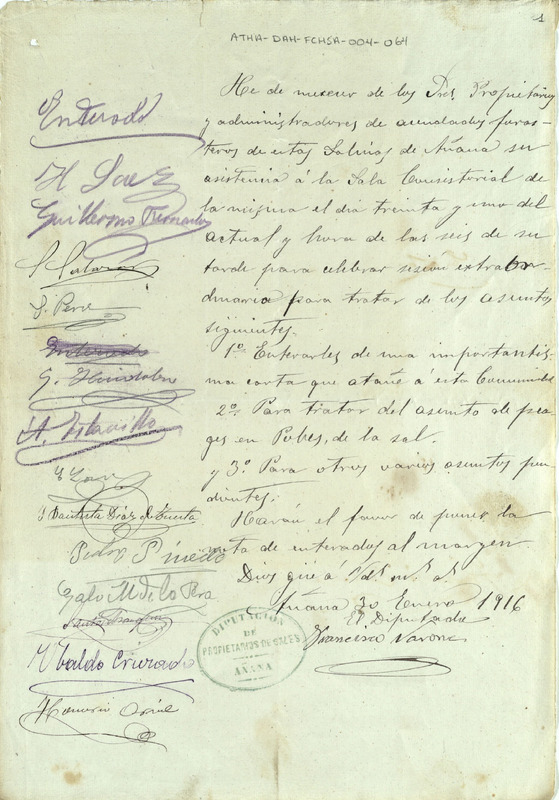 1
ATHA-DAH-FCHSA-004-064
He de merecer de los Sres. Propietarios
y administradores de acendados foras-
teros de estas Salinas de Añana su
asistencia á la Sala Consistorial de
la misma el dia treinta y uno del
actual y hora de las seis de su
tarde para celebrar sesion extraor-
dinaria para tratar de los asuntos
siguientes.
1º Enterarles de una importantis-
ma carta que atañe á esta Comunidad
2º Para tratar del asunto de pea-
ges en Pobes, de la sal.
y 3º Para otros varios asuntos pen
dientes.
Harán el favor de poner la
nota de enterados al margen.
Dios gue á Vds m. as
Añana 30 Enero 1916
El Diputado
Francisco Varona
Enterado
H Saez
Guillermo Fernandez
S. Salazar
S. Pera
Enterado
A. Estavillo
J Bautista Diaz de Tuesta
Pedro Pinedo
Galo M de la Pera
Ubaldo Cruzado
DIPUTACION
DE
PROPIETARIOS DE SALES
AÑANA